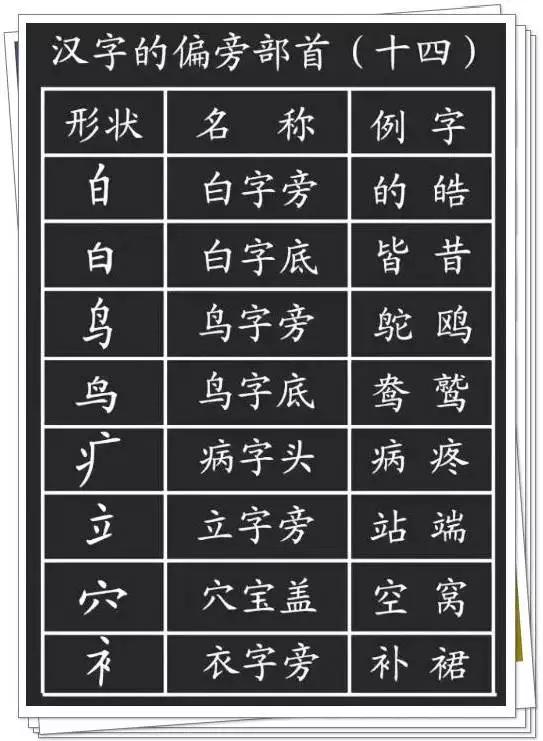 汉字的偏旁部首（十四）
形状 名称 例字
白 白字旁 的 皓
白 白字底 皆 昔
鸟 鸟字旁 鸵 鸥
鸟 鸟字底 鸯 鹫
疒 病字头 病 疼
立 立字旁 站 端
穴 穴宝盖 空 窝
衤 衣字旁 补 裙